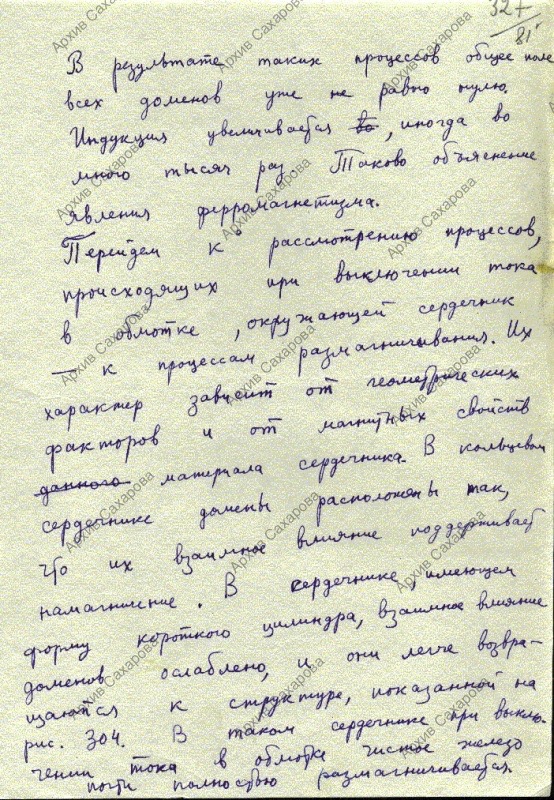 327
81
В результате таких процессов общее поле
всех доменов уже не равно нулю.
Индукция увеличивается во, иногда во
много тысяч раз. Таково объяснение
явления ферромагнетизма.
Перейдем к рассмотрению процессов,
происходящих при выключении тока
в обмотке, окружающей сердечник
— к процессам размагничивания. Их
характер зависит от геометрических
факторов и от магнитных свойств
данного материала сердечника. В кольцевом
сердечнике домены расположены так,
что их взаимное влияние поддерживает
намагничение. В сердечнике, имеющем
форму короткого цилиндра, взаимное влияние
доменов ослаблено, и они легче возвра-
щаются к структуре, показанной на
рис. 304. В таком сердечнике при выклю-
чении тока в обмотке чистое железо
почти полностью размагничивается.
Архив Сахарова